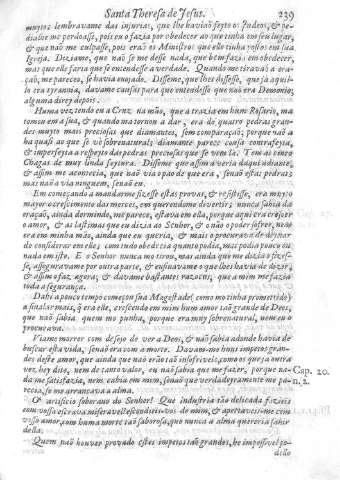 Santa Theresa de Jesus. 239
muytos) lembravame das injurias, que lhe haviaõ feyto os Judeos, & pe-
dialhe me perdoasse, pois eu o fazia por obedecer ao que tinha em seu lugar,
& que naõ me culpasse, pois eraõ os Ministros que elle tinha postos em sua
Igreja. Diziame, que naõ se me desse nada, que bem fazia em obedecer,
mas que elle faria que se entendesse a verdade. Quando me tiravaõ a ora-
çaõ, me pareceo, se havia enojado. Disseme, que lhes dissesse, que ja aquil-
lo era tyrannia, davame causas para que entendesse que naõ era Demonio;
alguma direy depois.
Huma vez, tendo eu a Cruz na maõ, que a trazia em hum Rosario, ma
tomou em a sua, & quando ma tornou a dar, era de quatro pedras gran-
des muyto mais preciosas que diamantes, sem comparaçaõ; porque naõ a
ha quasi ao que se vè sobrenatural; diamante parece cousa contrafeyta,
& imperfeyta a respeyto das pedras preciosas que se vem là. Tem as cinco
Chagas de muy linda feytura. Disseme que assim a veria daqui adiante,
& assim me acontecia, que naõ via o pao de que era, senaõ estas pedras;
mas naõ a via ninguem, senaõ eu.
Em começando a mandarme fizesse estas provas, & resistisse, era muyto
mayor o crescimento das merces, em querendome divertir; nunca sahia da
oraçaõ, ainda dormindo, me parece, estava em ella, porque aqui era crescer
o amor, & as lastimas que eu dizia ao Senhor, & o naõ o poder sofrer, nem
era em minha maõ, ainda que eu queria, & mais o procurava de deixar
de considerar em elle; com tudo obedecia quanto podia, mas podia pouco ou
nada em isto. E o Senhor nunca mo tirou, mas ainda que me dizia o fizes-
se, asseguravame por outra parte, & ensinavame o que lhes havia de dizer;
& assim o faz agora; & davame bastantes razoens, que a mim me fazia
toda a segurança.
Dahi a pouco tempo começou sua Magestade (como mo tinha promettido)
a sinalar mais, que era elle, crescendo em mim hum amor taõ grande de Deos,
que naõ sabia quem mo punha, porque era muy sobrenatural, nem eu o
procurava.
Viame morrer com desejo de ver a Deos, & naõ sabia adonde havia de
buscar esta vida, senaõ era com a morte. Davaõ-me huns impetos gran-
des deste amor, que ainda que naõ eraõ taõ insofriveis, como os que ja outra
vez hey dito, nem de tanto valor, eu naõ sabia que me fazer, porque na-
da me satisfazia, nem cabia em mim, senaõ que verdadeyramente me pa-
recia, se me arrancava a alma.
Cap. 20.
n. 2.
O artificio soberano do Senhor! Que industria taõ delicada fazieis
com vossa escrava miseravel! escondieis-vos de mim, & apertaveis-me com
vosso amor, com huma morte taõ saborosa, que nunca a alma quereria sahir
della.
Quem naõ houver provado estes impetos taõ grandes, he impossivel po-
dello